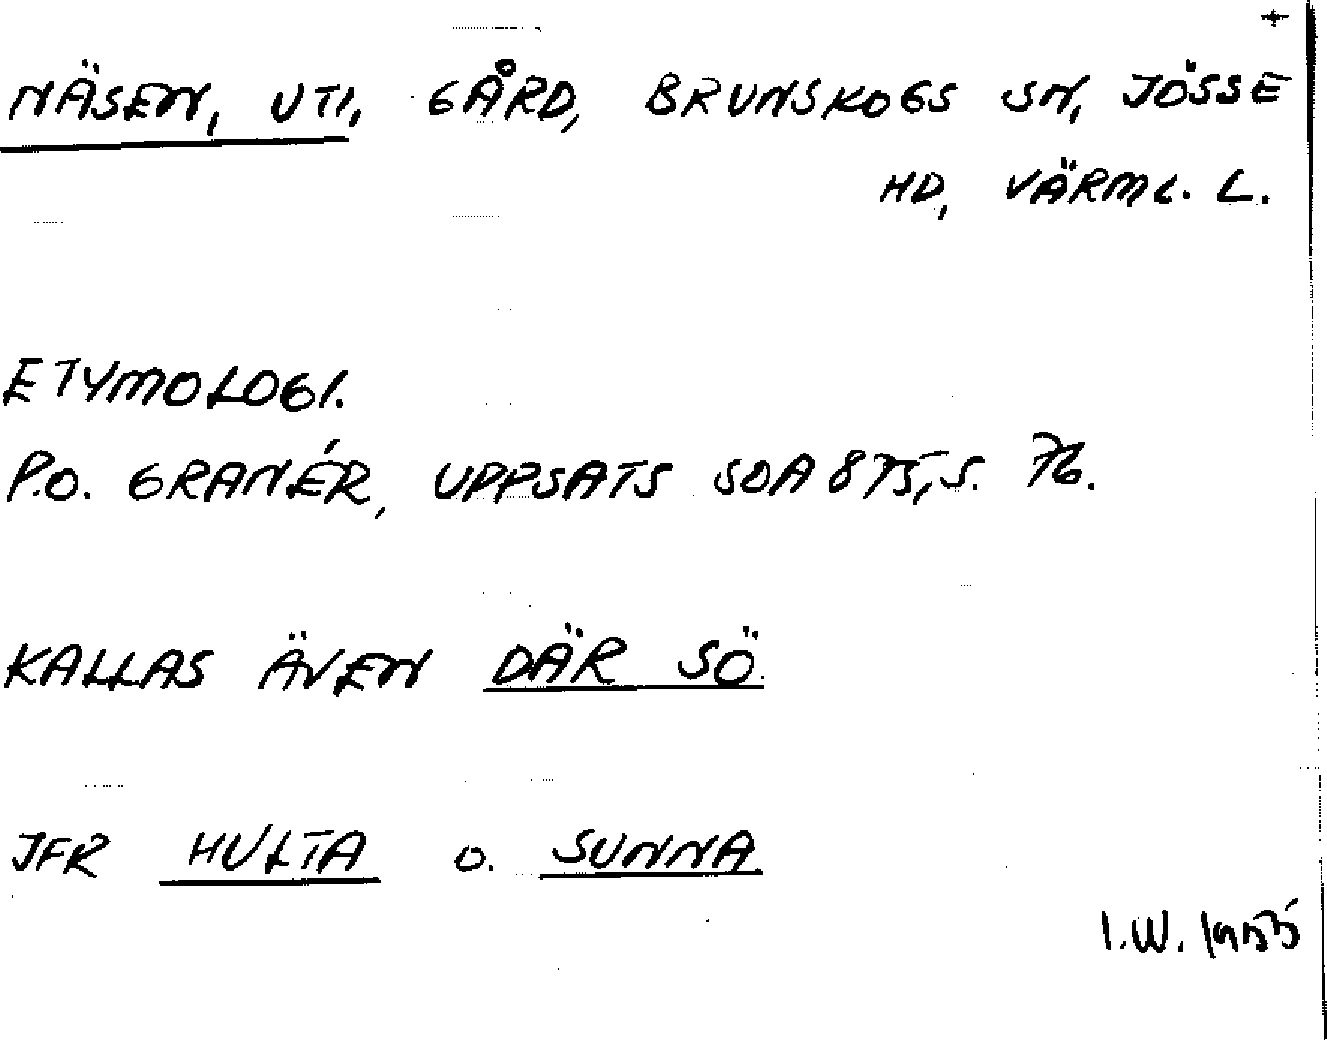 NÄSEN, UTI, GÅRD, BRUNSKOGS SN, JÖSSE
HD, VÄRML. L.
ETYMOLOGI.
P.O. GRANÉR, UPPSATS SOA 875, S. 76.
KALLAS ÄVEN DÄR SÖ.
JFR HULTA O. SUNNA.
I.W. 1955